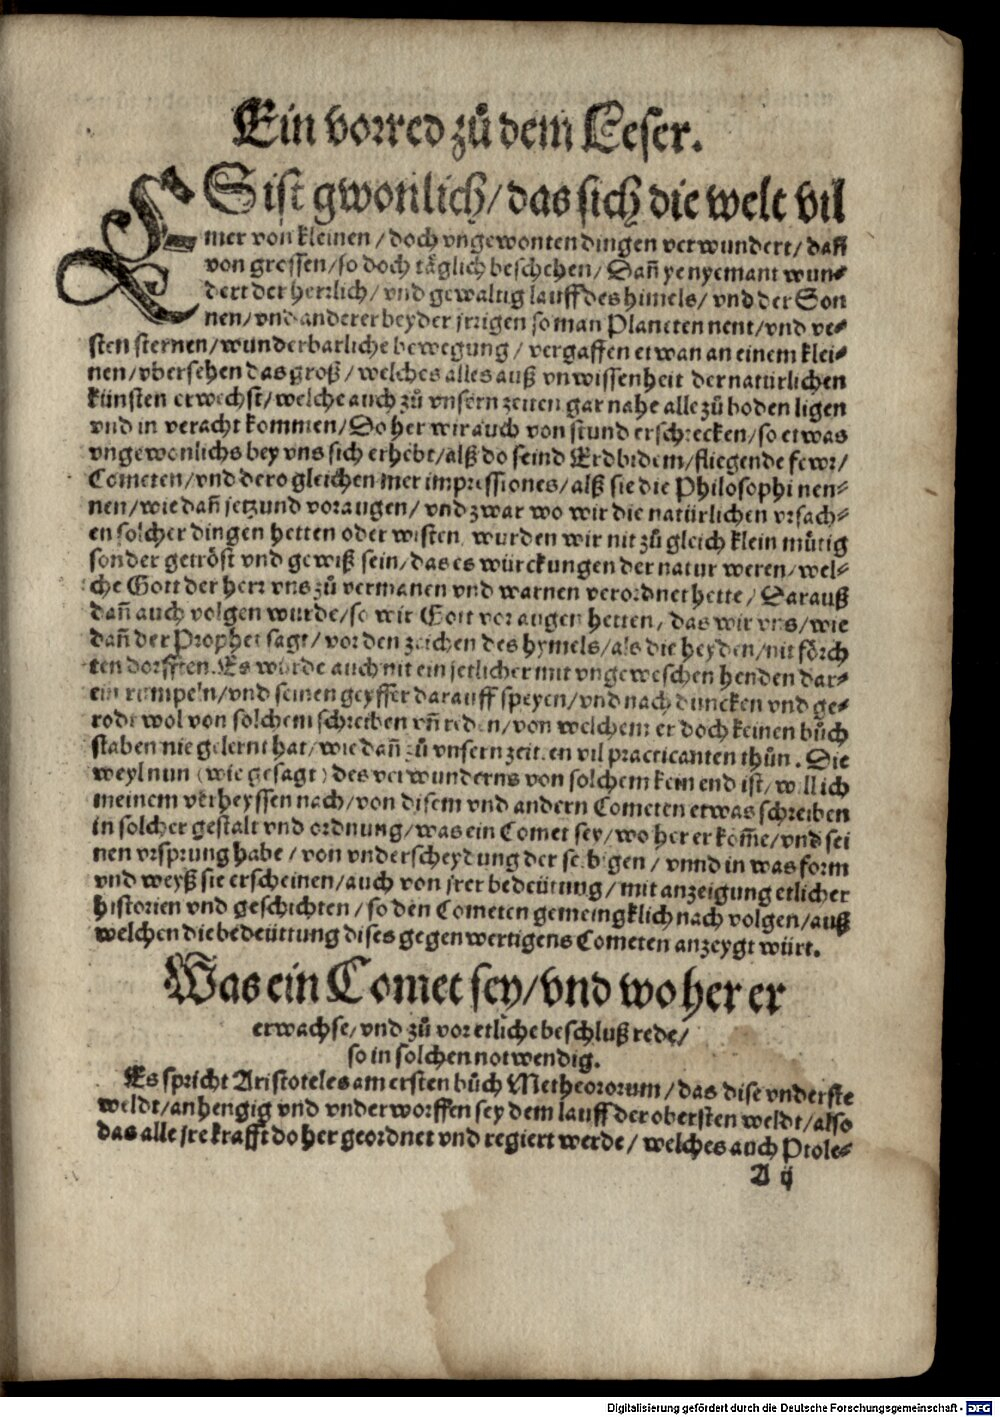 Ein vorred zů dem Leser.
ES ist gwonlich/das sich die welt vil
mer von kleinen/doch vngewonten dingen verwundert/dañ
von grossen/so doch täglich beschehen/Dañ ye nyemant wun-
dert der herrlich/vnd gewaltig lauff des himels/vnd der Son
nen/vnd anderer beyder jrrigen so man Planeten nent/vnd ve-
sten sternen/wunderbarliche bewegung/vergaffen etwan an einem klei-
nen/vbersehen das groß/welches alles auß vnwissenheit der natürlichen
künsten erwechst/welche auch zů vnsern zeiten gar nahe alle zů boden ligen
vnd in veracht kommen/Do her wir auch von stund erschrecken/so etwas
vngewonlichs bey vns sich erhebt/alß do seind Erdbidem/fliegende fewr/
Cometen/vnd dero gleichen mer impressiones/alß sie die Philosophi nen-
nen/wie dañ jetzund voraugen/vnd zwar wo wir die natürlichen vrsach-
en solcher dingen hetten oder wisten, wurden wir nit zů gleich klein mütig
sonder getröst vnd gewiß sein/das es würckungen der natur weren/wel-
che Gott der herr vns zů vermanen vnd warnen verordnet hette/Darauß
dañ auch volgen wurde/so wir Gott vor augen hetten, das wir vns/wie
dañ der Prophet sagt/vor den zeichen des hymels/als die heyden/nit förch
ten dorfften. Es wurde auch nit ein jetlicher mit vngeweschen henden dar-
ein rumpeln/vnd seinen geyffer darauff speyen/vnd nach duncken vnd ge-
rodt wol von solchem schreiben vñ reden/von welchem er doch keinen bůch
staben nie gelernt hat/wie dañ zů vnsern zeiten vil practicanten thůn. Die
weyl nun (wie gesagt) des verwunderns von solchem kein end ist/will ich
meinem verheyssen nach/von disem vnd andern Cometen etwas schreiben
in solcher gestalt vnd ordnung/was ein Comet sey/wo her er kom̃e/vnd sei
nen vrsprung habe/von vnderscheydung der selbigen/vnnd in was form
vnd weyß sie erscheinen/auch von jrer bedeütung/mit anzeigung etlicher
historien vnd geschichten/so den Cometen gemeingklich nach volgen/auß
welchen die bedeüttung dises gegenwertigens Cometen anzeygt würt.
Was ein Comet sey/vnd wo her er
erwachse/vnd zů vor etliche beschluß rede/
so in solchen notwendig.
Es spricht Aristoteles am ersten bůch Metheororum/das dise vnderste
weldt/anhengig vnd vnderworffen sey dem lauff der obersten weldt/also
das alle jre krafft do her geordnet vnd regiert werde/welches auch Ptole-
A ij
Digitalisierung gefördert durch die Deutsche Forschungsgemeinschaft - DFG